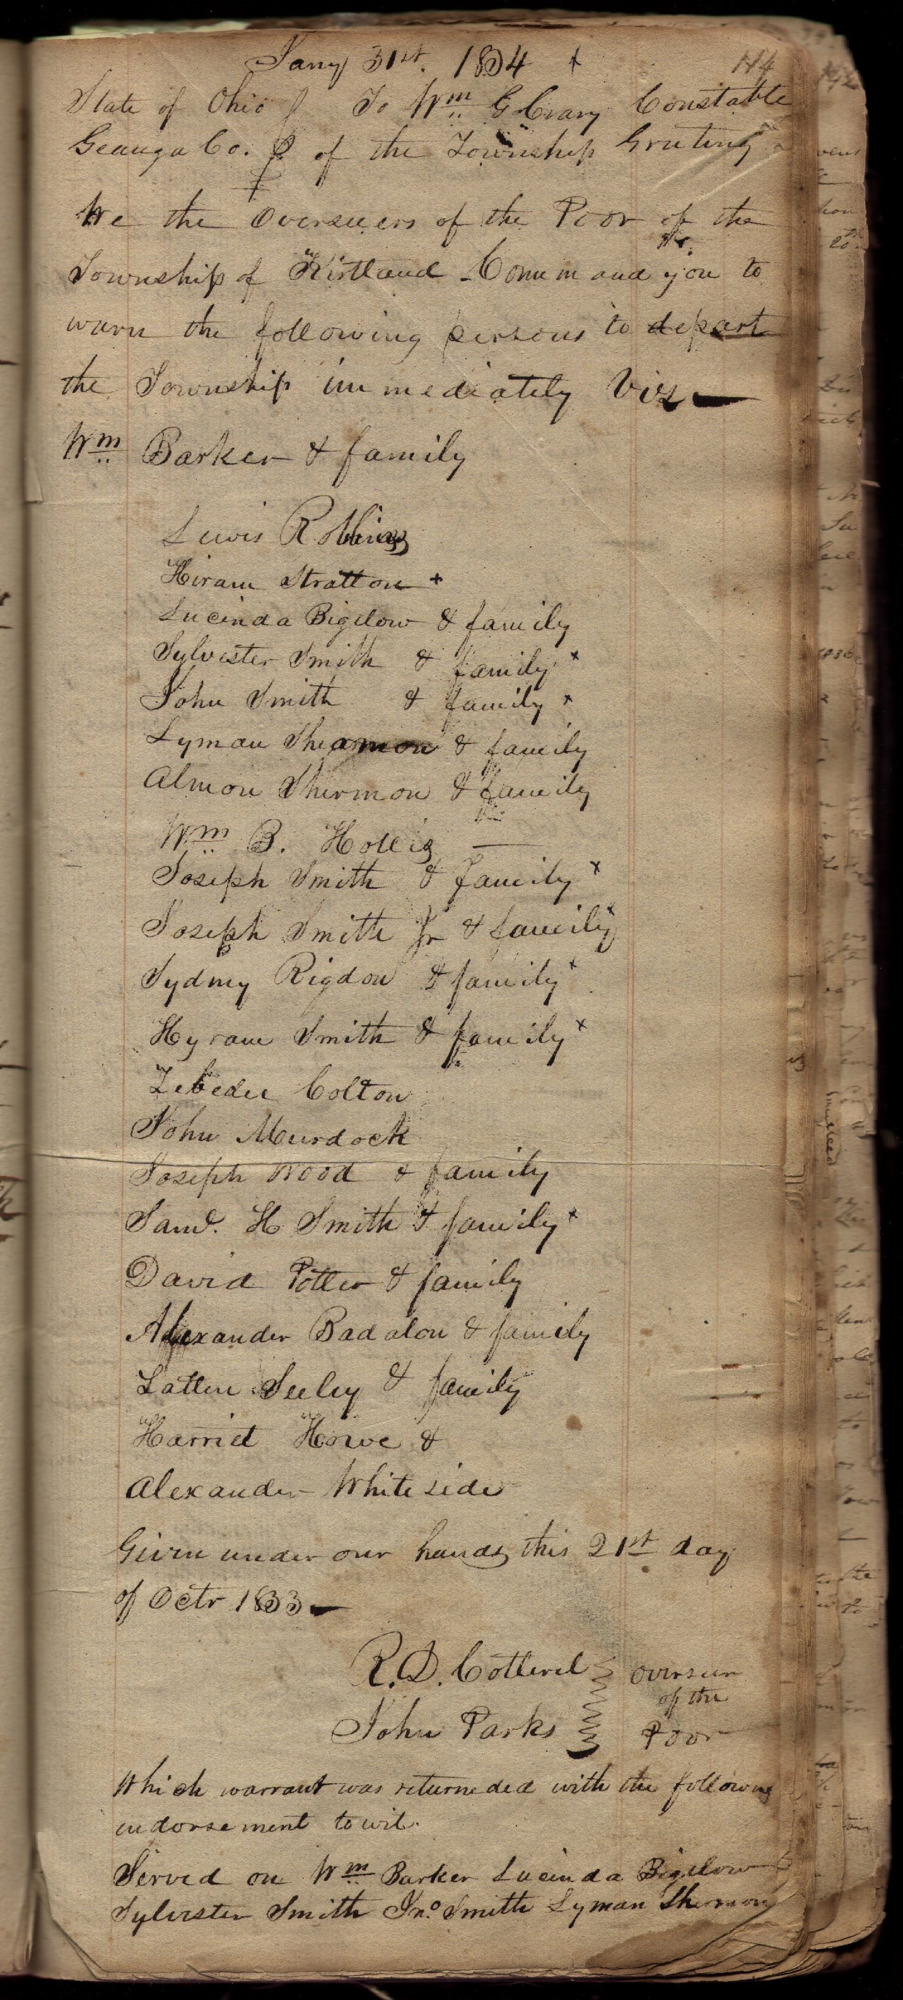 Jany 31st. 1834 +
114
State of Ohio } To Wm G Crary Constable
Geauga Co. } of the Township Greeting
We the Overseeers of the Poor of the
Township of Kirtland Command you to
warn the following persons to depart
the Township immediately Viz —
Wm Barker & family
Lewis Robbins
Hiram Stratton +
Lucinda Bigelow & family
Sylvester Smith & family x
John Smith & family x
Lyman Shearmon & family
Almon Shermon & family
Wm B. Hollis —
Joseph Smith & family x
Joseph Smith Jr & family x
Sydney Rigdon & family x
Hyram Smith & family x
Zebedee Colton
John Murdock
Joseph Wood & family
Saml. H Smith & family x
David Potter & family
Alexander Badalon & family
Latten Seeley & family
Harriet Howe &
Alexander Whiteside
Given under our hands this 21st day
of Octr 1833 —
R. D. Cotterel } overseer
of the
John Parks } Poor
Which warrant was returneded with the following
endorsement to wit.
Served on Wm Barker Lucinda Bigelow
Sylvester Smith Jno Smith Lyman Shermon